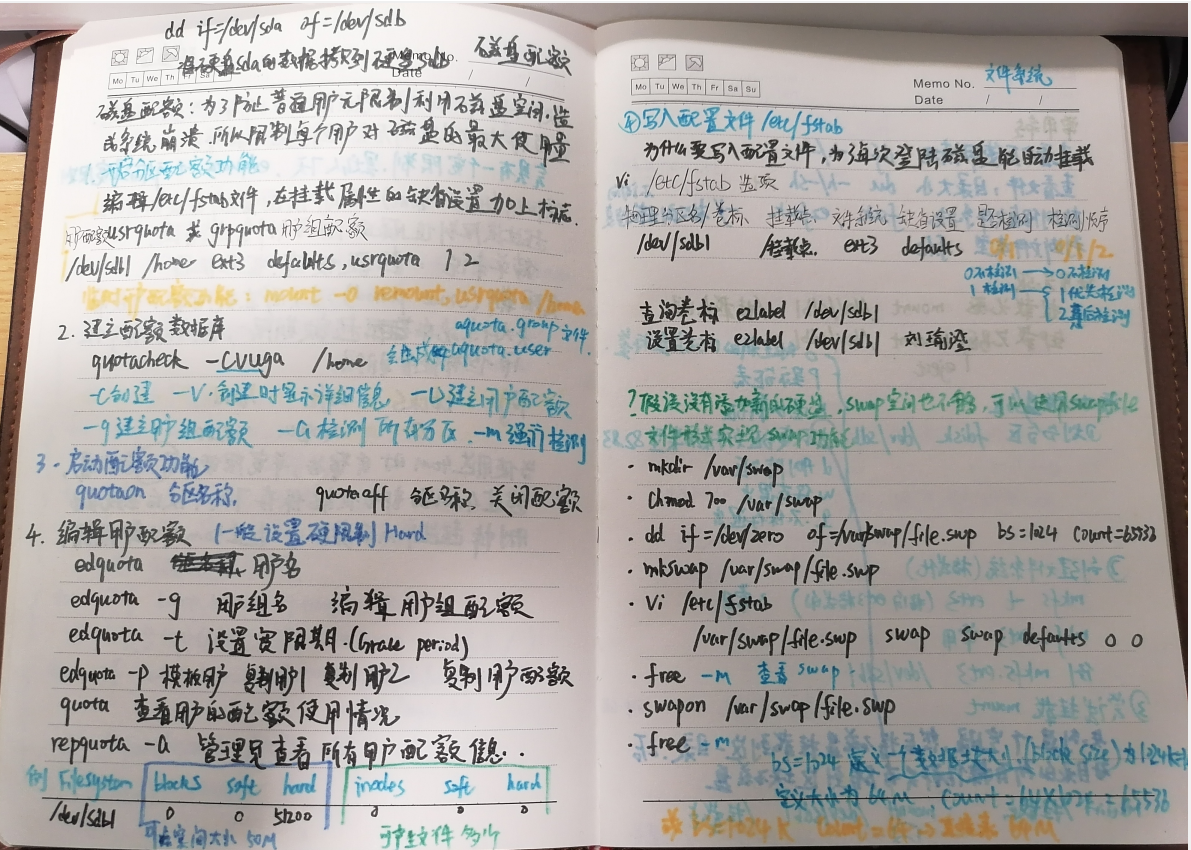 dd if=/dev/sda of=/dev/sdb
将硬盘sda的数据拷到硬盘sdb
磁盘配额
Memo No.
Date / /
Mo Tu We Th Fr Sa Su
磁盘配额：为了防止普通用户无限制利用磁盘空间，造
成系统崩溃，所以限制每个用户对磁盘的最大使用量
1. 开启分区配额功能
编辑/etc/fstab文件，在挂载属性的缺省设置加上标志
用户配额usrquota 或 grpquota 用户组配额
/dev/sdb1 /home ext3 defaults,usrquota 1 2
临时开配额功能：mount -o remount,usrquota /home
2. 建立配额数据库
aquota.group文件
quotacheck -cvuga /home 会生成 aquota.user
-c创建 -v.创建时显示详细信息 -u建立用户配额
-g建立用户组配额 -a检测所有分区 -m强制检测
3. 启动配额功能
quotaon 分区名称. quotaoff 分区名称. 关闭配额
4. 编辑用户配额 一般设置硬限制 Hard
edquota 用户名
edquota -g 用户组名 编辑用户组配额
edquota -t 设置宽限期.(Grace period)
edquota -p 模板用户 复制用户1 复制用户2 复制用户配额
quota 查看用户的配额使用情况
repquota -a 管理员查看所有用户配额信息..
例 Filesystem blocks soft hard inodes soft hard
/dev/sdb1 0 0 51200 0 0 0
可占空间大小 50M 可建文件多少
Memo No. 文件系统
Date / /
Mo Tu We Th Fr Sa Su
④写入配置文件 /etc/fstab
为什么要写入配置文件，为每次登陆磁盘能自动挂载
Vi /etc/fstab 选项
物理分区名/卷标 挂载点 文件系统 缺省设置 是否检测 检测顺序
/dev/sdb1 /挂载点. ext3 defaults 0/1 0/1/2
0不检测 → 0不检测
1检测 → 1优先检测
2最后检测
查询卷标 e2label /dev/sdb1
设置卷标 e2label /dev/sdb1 刘瑜澄
?假设没有添加新的硬盘，swap空间也不够，可以使用swapfile
文件技术实现swap功能
· mkdir /var/swap
· Chmod 700 /var/swap
· dd if=/dev/zero of=/var/swap/file.swp bs=1024 Count=65536
· mkswap /var/swap/file.swp
· Vi /etc/fstab
/var/swap/file.swp swap swap defaults 0 0
· free -m 查看swap
· swapon /var/swap/file.swp
· free -m
bs=1024 定义一个数据块大小(block size)为1024k
定义大小为64M Count=64×1024=65536
或 bs=1024K Count=64